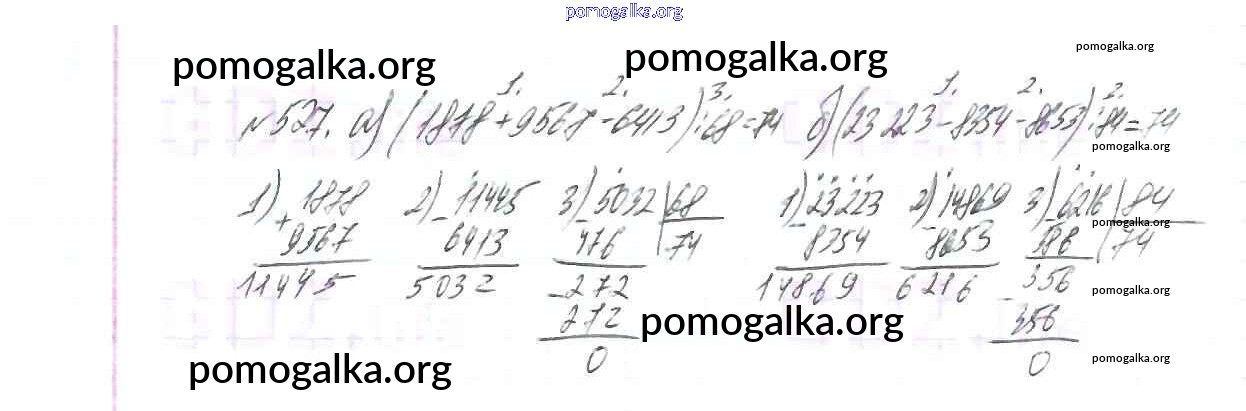 pomogalka.org
pomogalka.org pomogalka.org pomogalka.org
1. 2. 3. 1. 2. 2.
№527. а) (1878+9567-6413):68=74 б) (23 223-8354-8653):84=74
pomogalka.org
1) 1878 2) 11445 3) 5032 68 1) 23223 2) 14869 3) 6216 84
+ - - - - -
pomogalka.org
9567 6413 476 74 8354 8653 588 74
11445 5032 -272 14869 6216 -336
pomogalka.org
272 336
pomogalka.org
0 0
pomogalka.org pomogalka.org